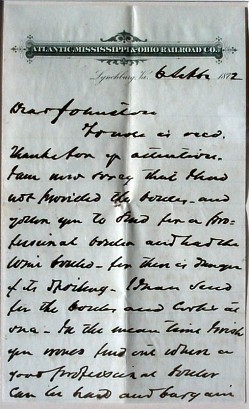 ATLANTIC, MISSISSIPPI & OHIO RAILROAD CO.
Lynchburg, Va. 6 1872
Dear Johnston
is recd.
Thanks for yr attention.
I am now sorry that I had
not provided the bottles and
gotten you to send for a pro-
fessional bottler and had the
wine bottled - for there is danger
of its spoiling - I can send
for the bottles and corks at
once - In the mean time I wish
you would find out where a
good professional bottler
can be had and bargain